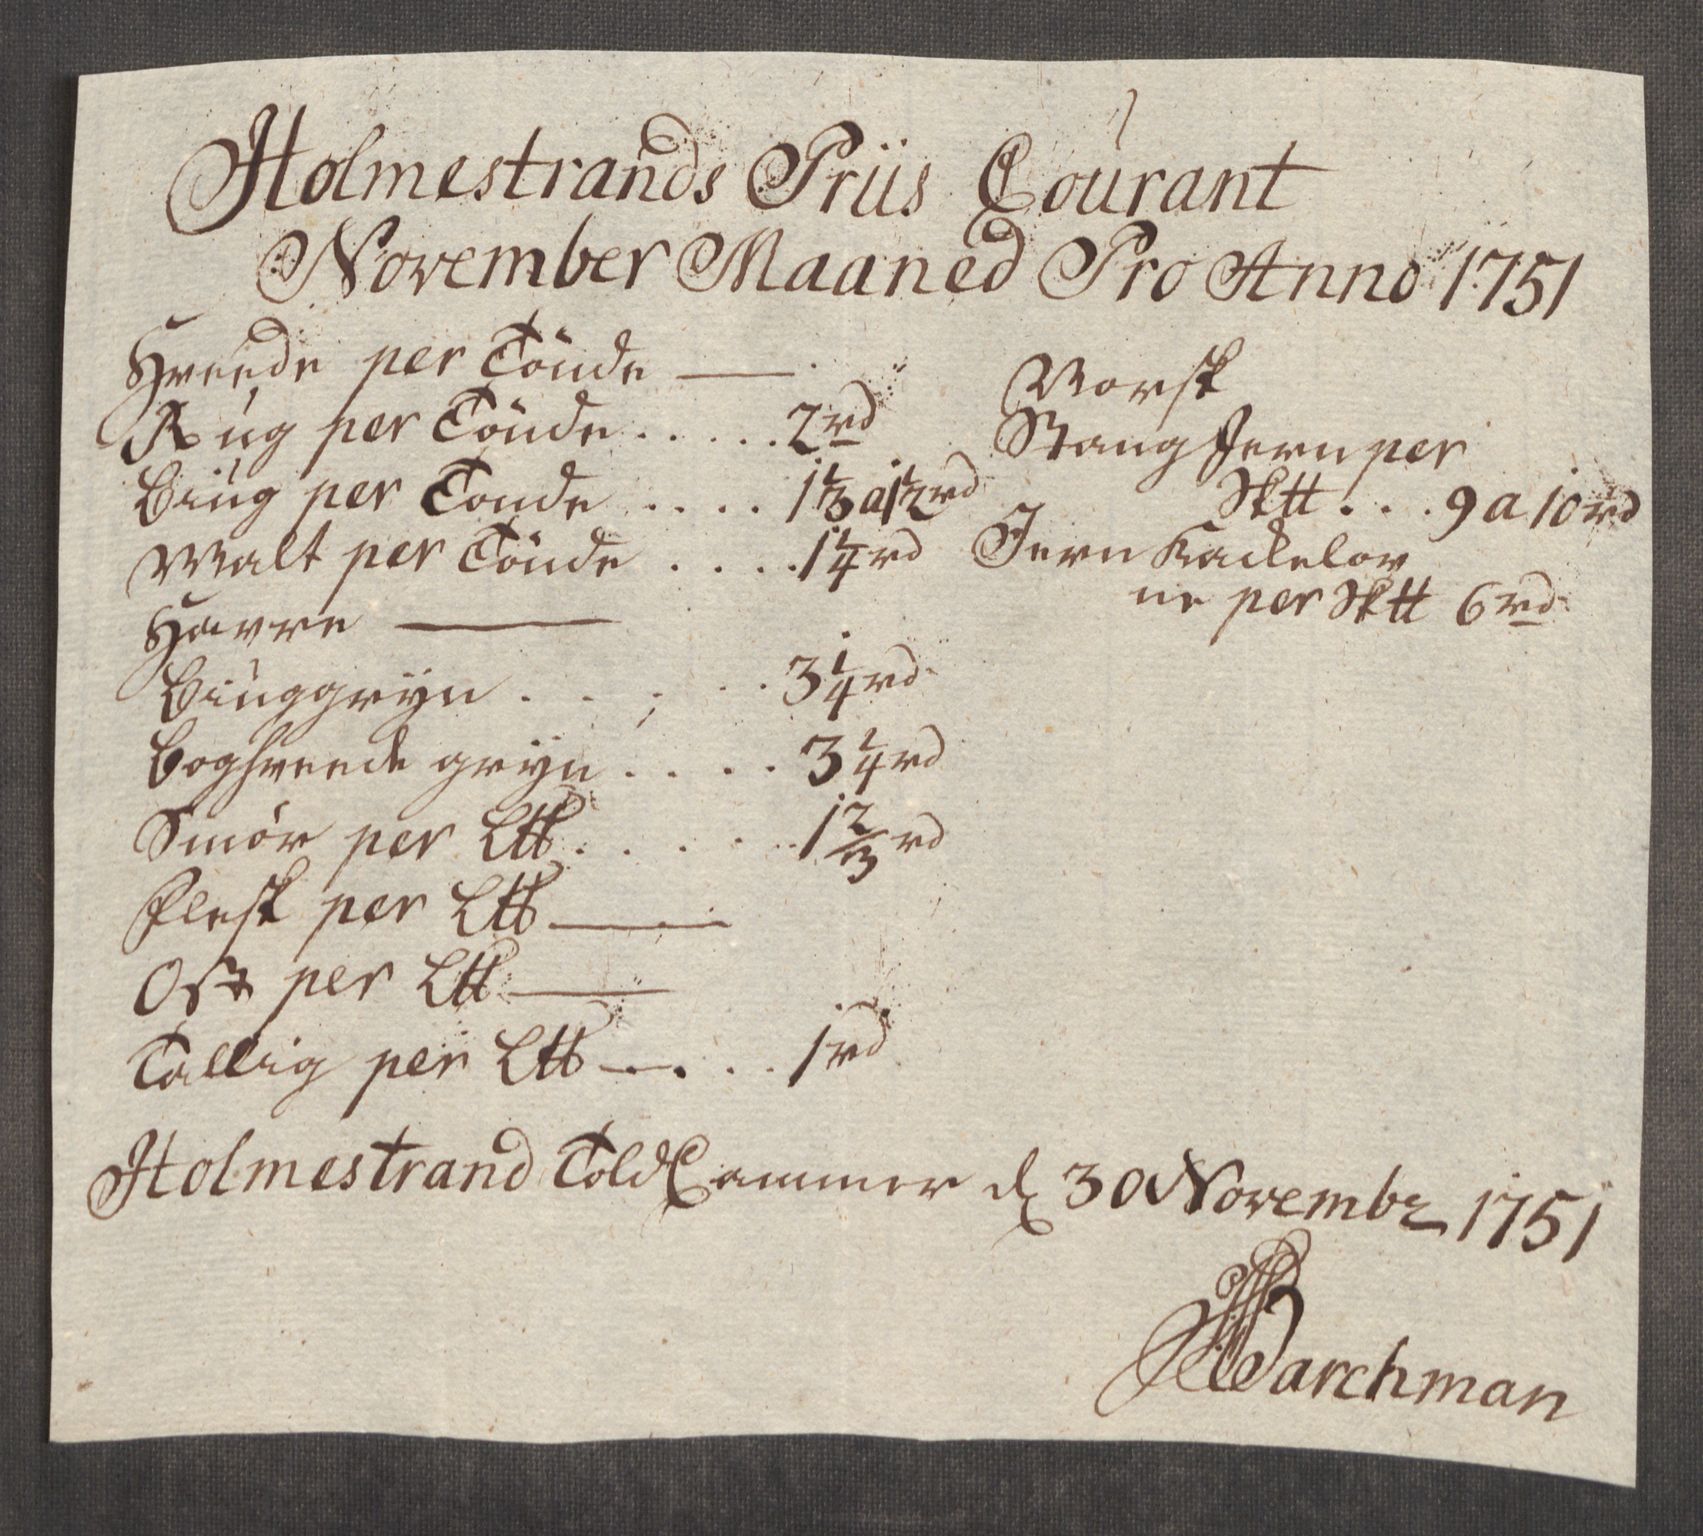 Holmestrands Priis Courant
November Maaned Pro Anno 1751
Hveede per Tönde —
Rug per Tönde . . . . . 2 rd
Biug per Tonde . . . . 1 1/3 a 1 1/2 rd
Malt per Tönde . . . . 1 1/4 rd
Havre —
Biuggryn . . . . . 3 1/4 rd
Boghveede gryn . . . . 3 1/4 rd
Smör per L℔ . . . . . 1 2/3 rd
Flesk per L℔ —
Ost per L℔ —
Tallig per L℔ — . . . 1 rd
Norsk
Stang Jern per
Sk℔ . . . 9 a 10 rd
Jern Kackelov
ne per Sk℔ 6 rd
Holmestrand Told Cammer d 30 Novembr 1751
Barchman